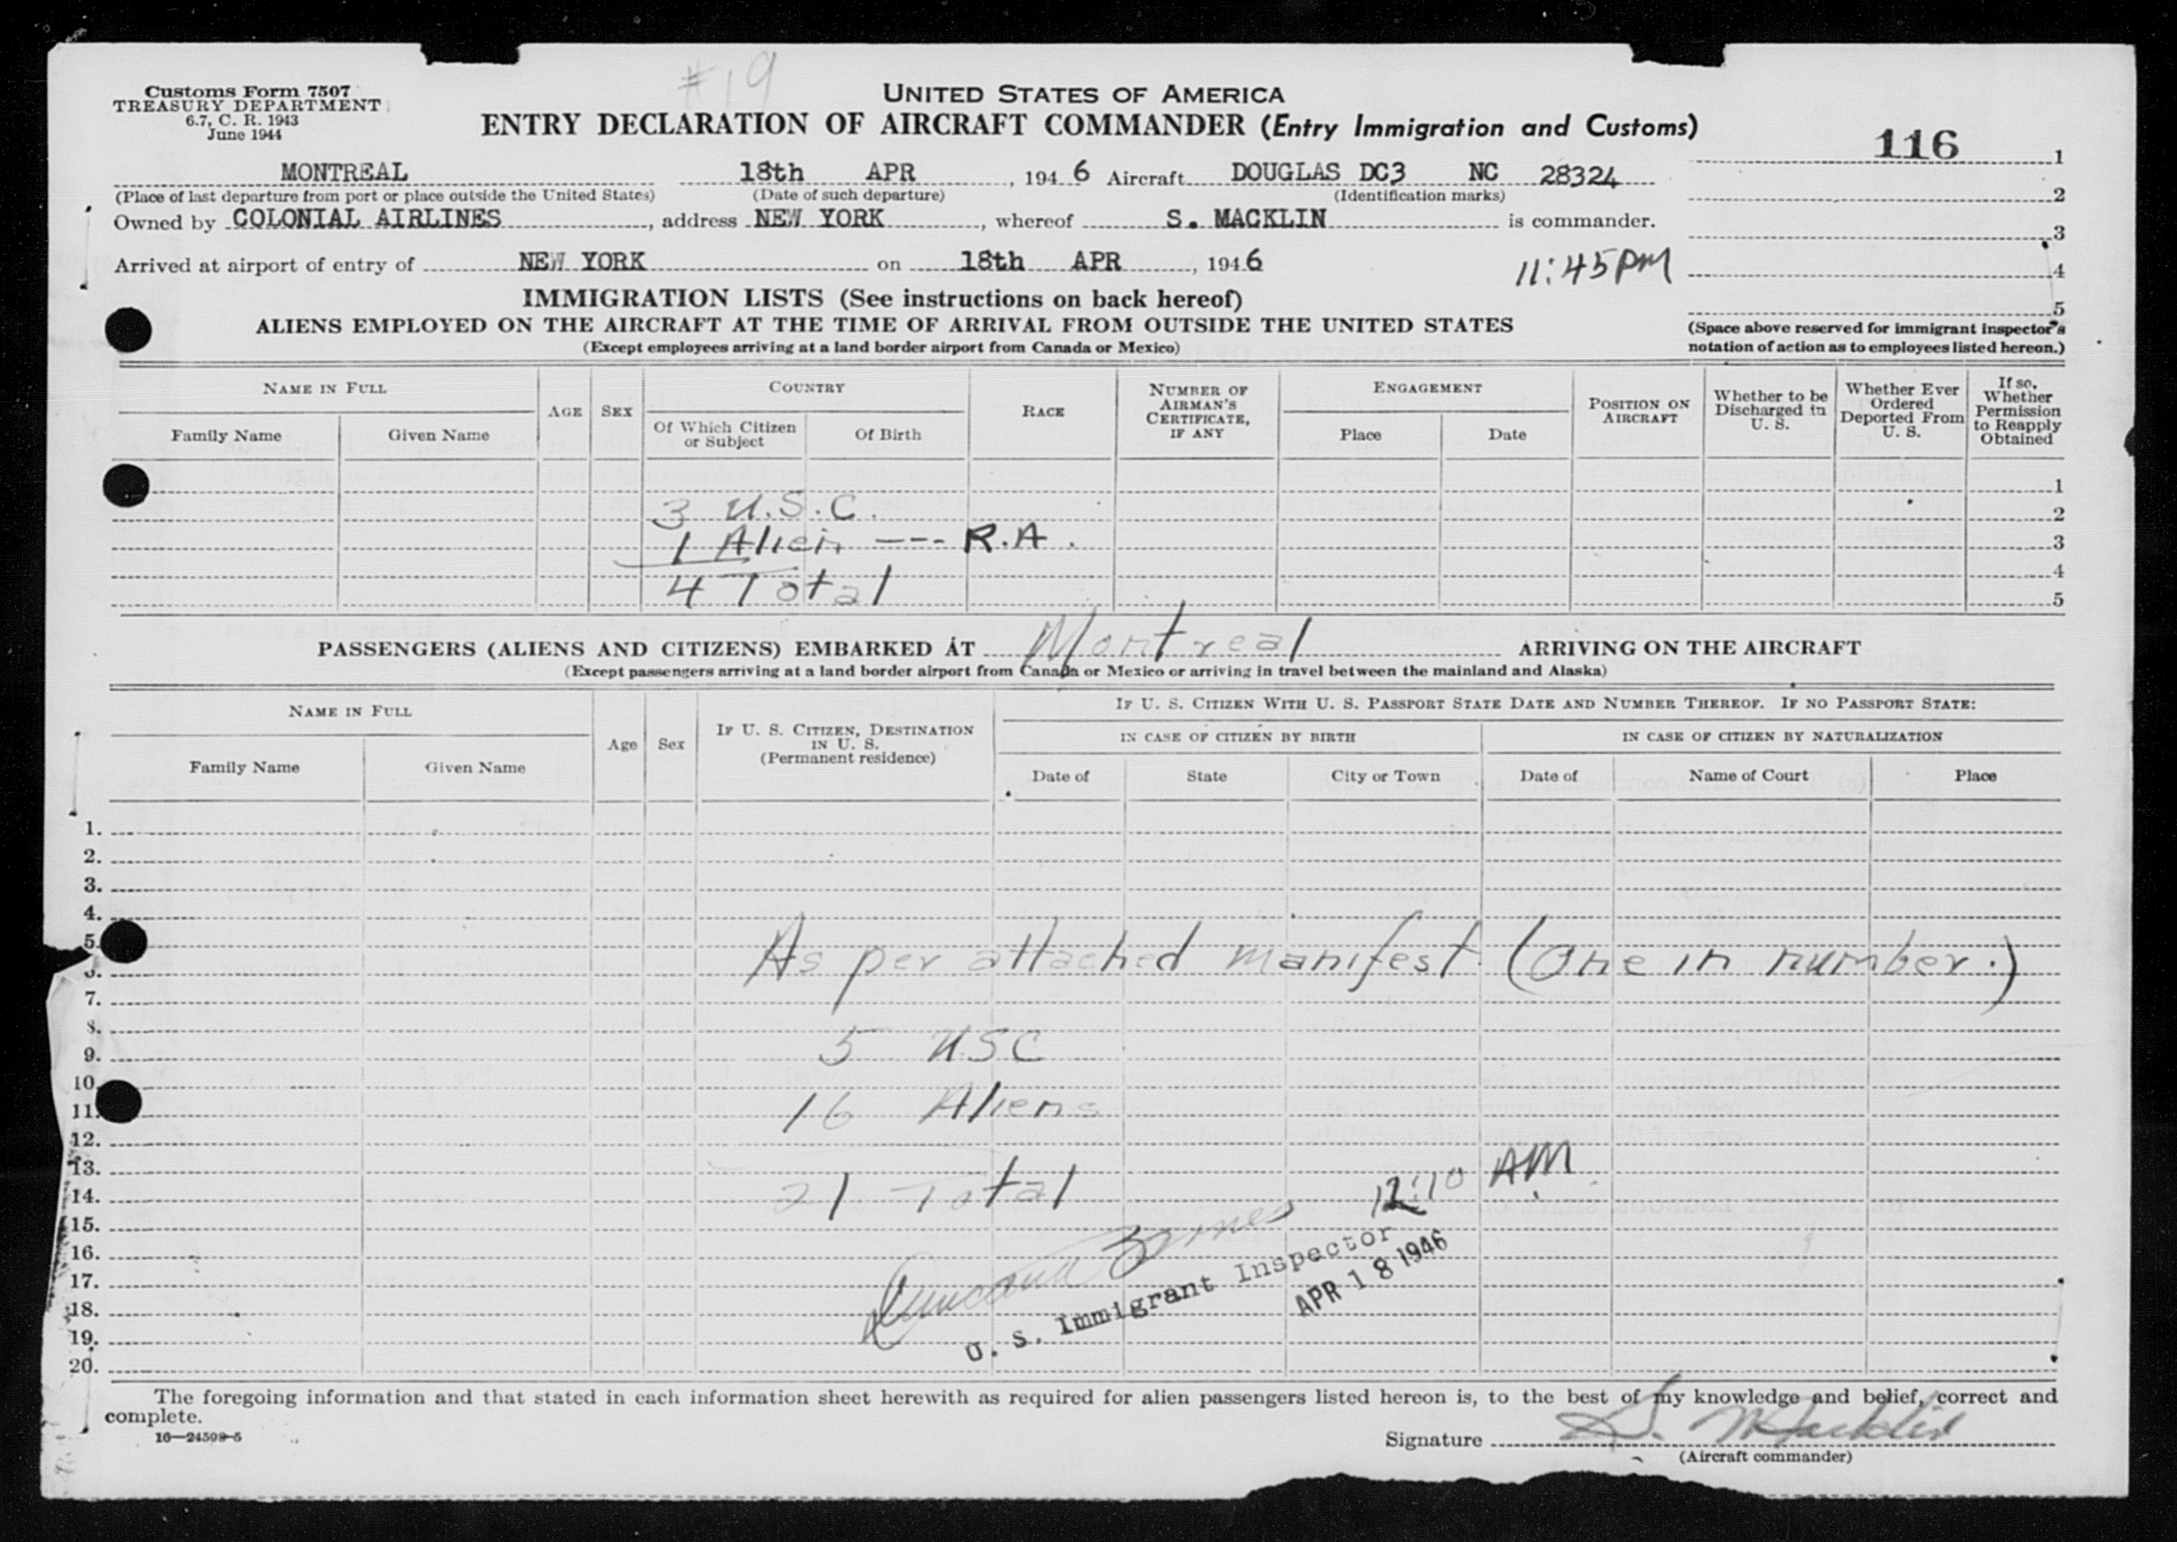 #19
Customs Form 7507
TREASURY DEPARTMENT
6.7, C. R. 1943
June 1944
UNITED STATES OF AMERICA
ENTRY DECLARATION OF AIRCRAFT COMMANDER (Entry Immigration and Customs)
116
MONTREAL 18th APR, 1946 Aircraft DOUGLAS DC3 NC 28324
(Place of last departure from port or place outside the United States) (Date of such departure) (Identification marks)
Owned by COLONIAL AIRLINES, address NEW YORK, whereof S. MACKLIN is commander.
Arrived at airport of entry of NEW YORK on 18th APR, 1946 11:45PM
1
2
3
4
5
IMMIGRATION LISTS (See instructions on back hereof)
ALIENS EMPLOYED ON THE AIRCRAFT AT THE TIME OF ARRIVAL FROM OUTSIDE THE UNITED STATES
(Except employees arriving at a land border airport from Canada or Mexico)
(Space above reserved for immigrant inspector's
notation of action as to employees listed hereon.)
NAME IN FULL
Family Name
Given Name
AGE
SEX
COUNTRY
Of Which Citizen
or Subject
Of Birth
RACE
NUMBER OF
AIRMAN'S
CERTIFICATE,
IF ANY
ENGAGEMENT
Place
Date
POSITION ON
AIRCRAFT
Whether to be
Discharged in
U. S.
Whether Ever
Ordered
Deported From
U. S.
If so,
Whether
Permission
to Reapply
Obtained
1
3 U.S.C. 2
1 Alien --- R.A. 3
4
4 Total 5
PASSENGERS (ALIENS AND CITIZENS) EMBARKED AT Montreal ARRIVING ON THE AIRCRAFT
(Except passengers arriving at a land border airport from Canada or Mexico or arriving in travel between the mainland and Alaska)
NAME IN FULL
Family Name
Given Name
Age
Sex
IF U. S. CITIZEN, DESTINATION
IN U. S.
(Permanent residence)
IF U. S. CITIZEN WITH U. S. PASSPORT STATE DATE AND NUMBER THEREOF. IF NO PASSPORT STATE:
IN CASE OF CITIZEN BY BIRTH
Date of
State
City or Town
IN CASE OF CITIZEN BY NATURALIZATION
Date of
Name of Court
Place
1.
2.
3.
4.
5. As per attached manifest (One in number.)
6.
7.
8.
9. 5 USC
10.
11. 16 Aliens
12.
13. 12:10 AM
14. 21 Total
15.
16.
17.
18.
19.
20.
U. S. Immigrant Inspector
APR 18 1946
The foregoing information and that stated in each information sheet herewith as required for alien passengers listed hereon is, to the best of my knowledge and belief, correct and
complete.
16—24598-5
Signature S. Macklin
(Aircraft commander)